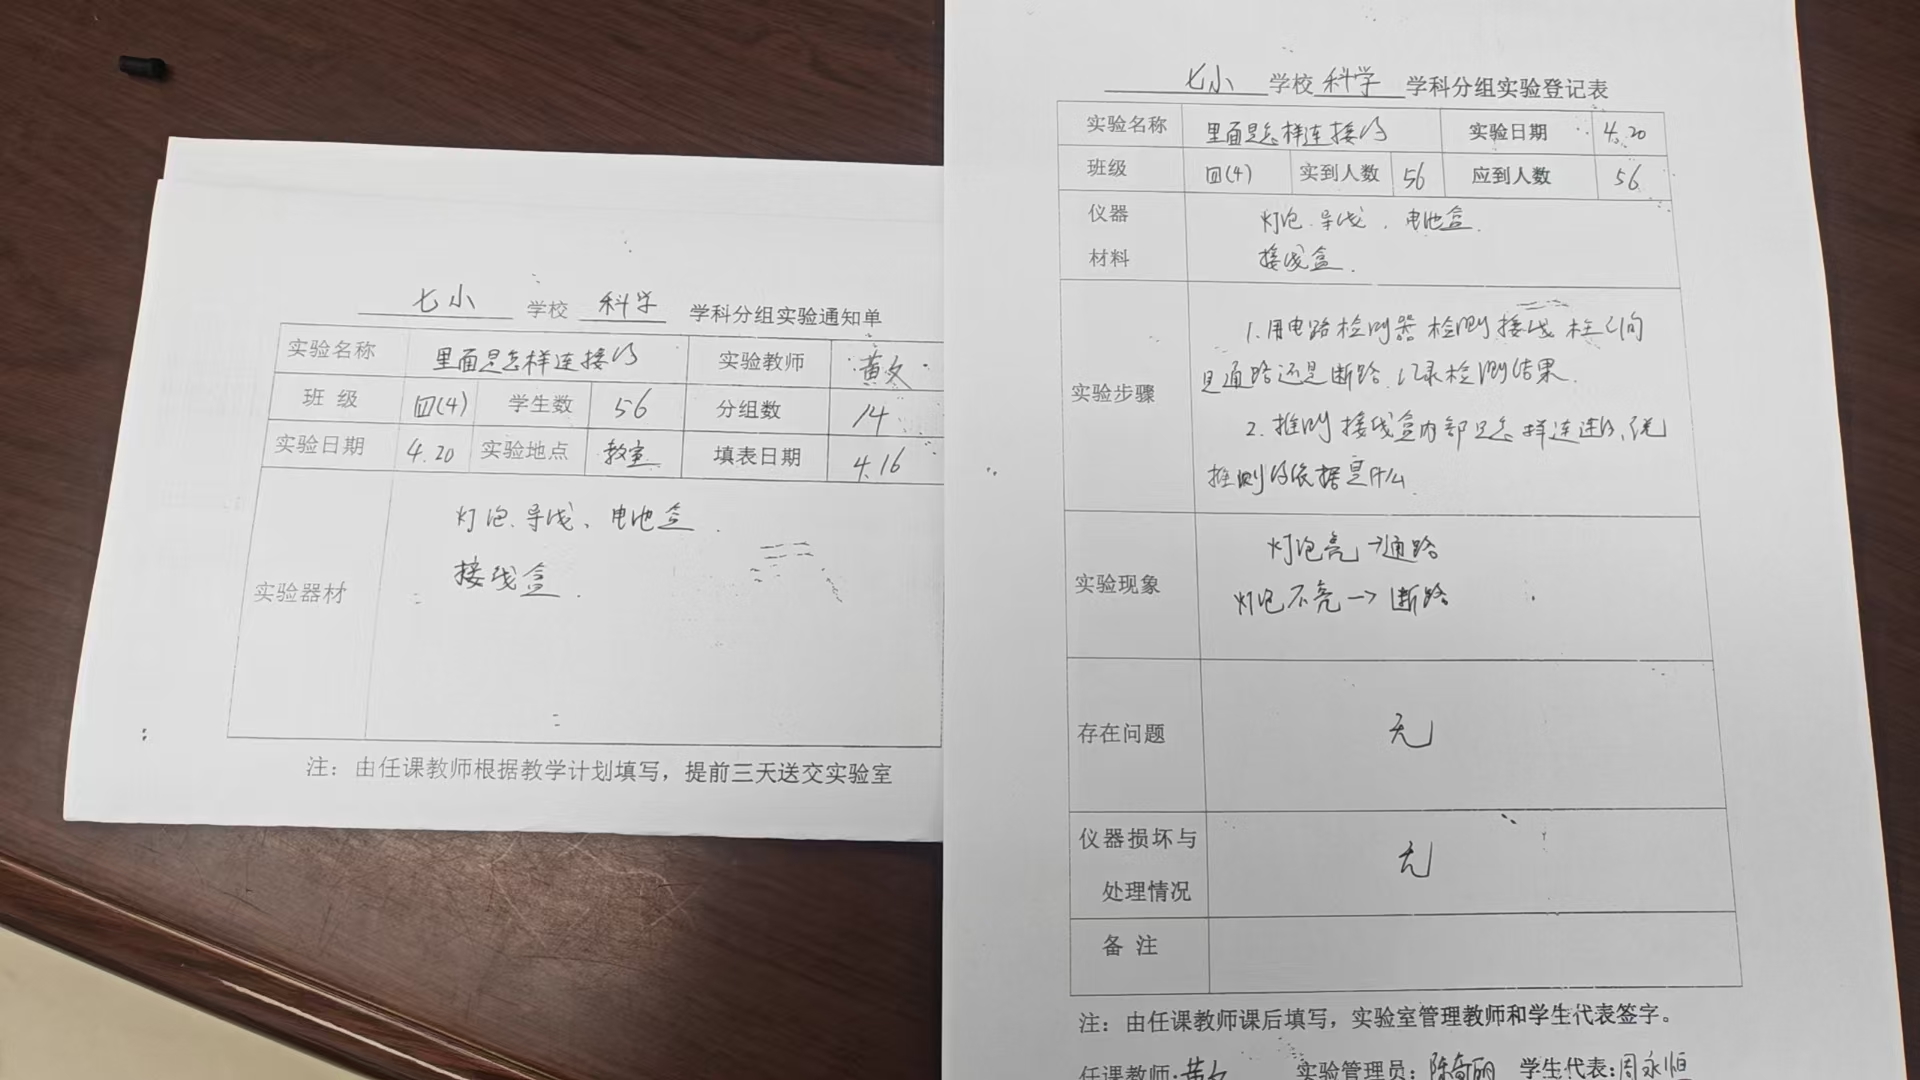 七小 学校 科学 学科分组实验通知单
实验名称 里面是怎样连接的 实验教师 黄文
班 级 四(4) 学生数 56 分组数 14
实验日期 4.20 实验地点 教室 填表日期 4.16
实验器材 灯泡、导线、电池盒.
接线盒.
注：由任课教师根据教学计划填写，提前三天送交实验室
七小 学校 科学 学科分组实验登记表
实验名称 里面是怎样连接的 实验日期 4.20
班级 四(4) 实到人数 56 应到人数 56
仪器 灯泡、导线、电池盒.
材料 接线盒.
实验步骤 1.用电路检测器检测接线柱之间
是通路还是断路,记录检测结果.
2.推测接线盒内部是怎样连接的,说
推测的依据是什么.
实验现象 灯泡亮→通路
灯泡不亮→断路
存在问题 无
仪器损坏与 无
处理情况
备 注
注：由任课教师课后填写，实验室管理教师和学生代表签字。
任课教师:黄文 实验管理员：陈奇丽 学生代表:周永恒